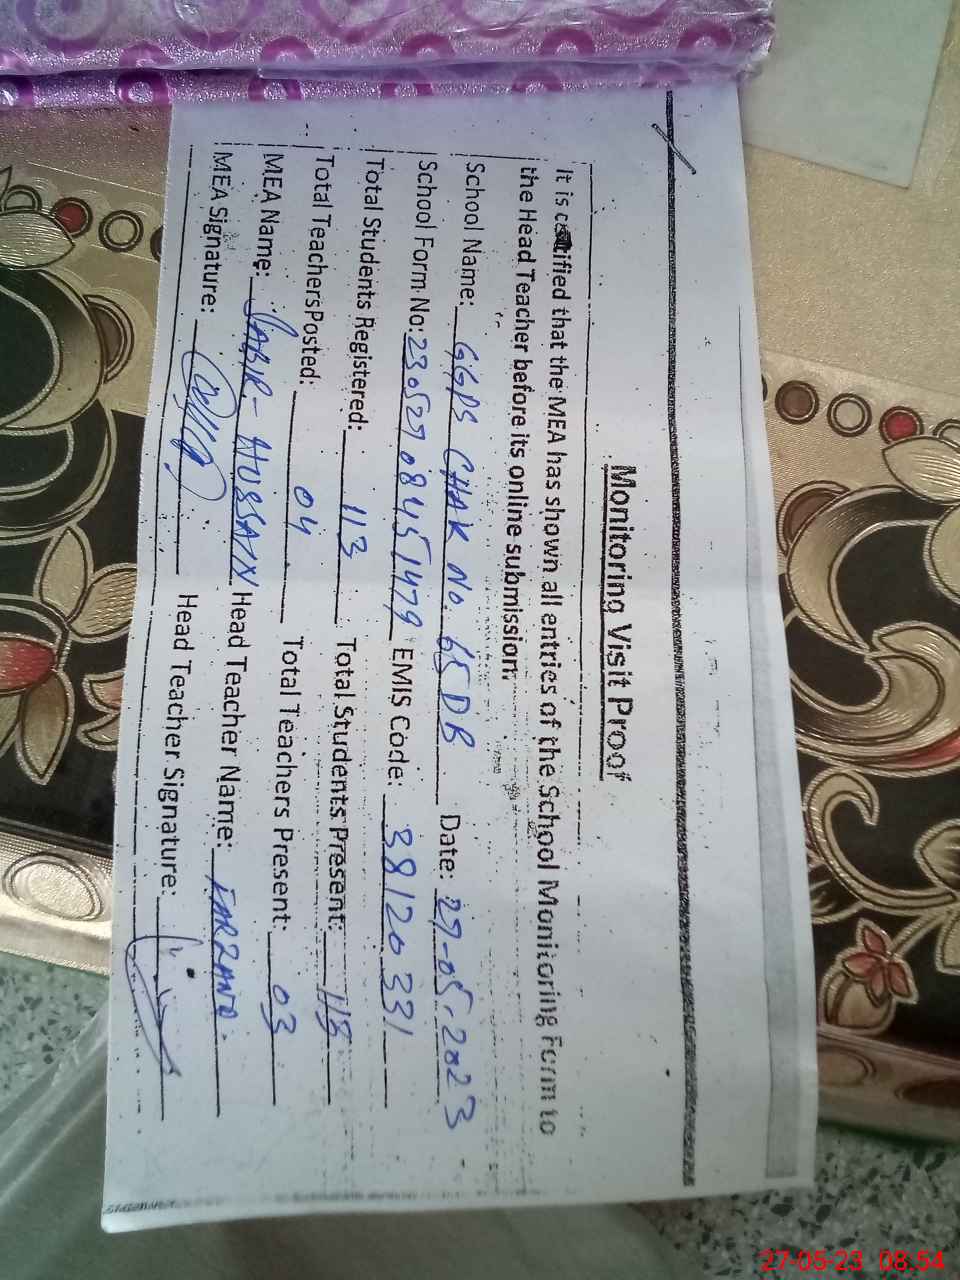 Monitoring Visit Proof
It is certified that the MEA has shown all entries of the School Monitoring Form to
the Head Teacher before its online submission.
School Name: GGPS CHAK No. 65 DB Date: 27-05-2023
School Form No: 230527084451479 EMIS Code: 38120331
Total Students Registered: 113 Total Students Present: 118
Total Teachers Posted: 04 Total Teachers Present: 03
MEA Name: JABIR-HUSSAIN Head Teacher Name: FARZANA.
MEA Signature: Head Teacher Signature:
27-05-23 08:54